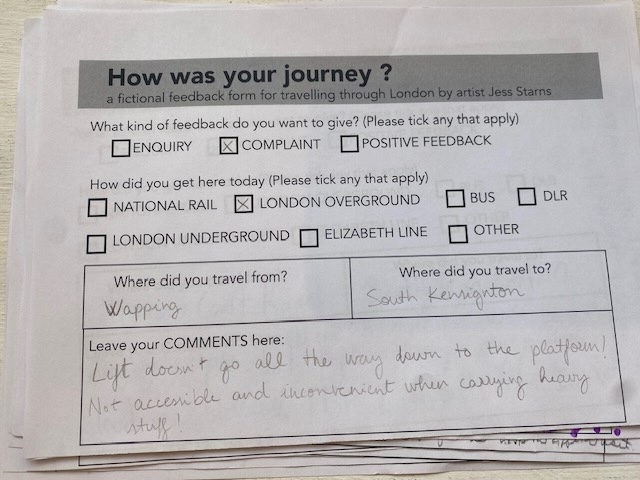 How was your journey ?
a fictional feedback form for travelling through London by artist Jess Starns
What kind of feedback do you want to give? (Please tick any that apply)
ENQUIRY COMPLAINT POSITIVE FEEDBACK
How did you get here today (Please tick any that apply)
NATIONAL RAIL LONDON OVERGROUND BUS DLR
LONDON UNDERGROUND ELIZABETH LINE OTHER
Where did you travel from? Where did you travel to?
Wapping South Kensignton
Leave your COMMENTS here:
Lift doesn't go all the way down to the platform!
Not accessible and inconvenient when carrying heavy
stuff!